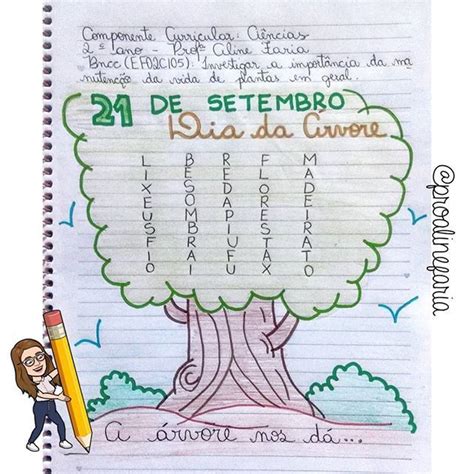 Componente Curricular: Ciências
2º ano - Profª Aline Faria
Bncc (EF02CI05): Investigar a importância da ma
nutenção da vida de plantas em geral.
21 DE SETEMBRO
Dia da Árvore
L B R F M
I E E L A
X S D O D
E O A R E
U M P E I
S B I S R
F R U T A
I A F A T
O I U X O
A árvore nos dá...
@proalinefaria